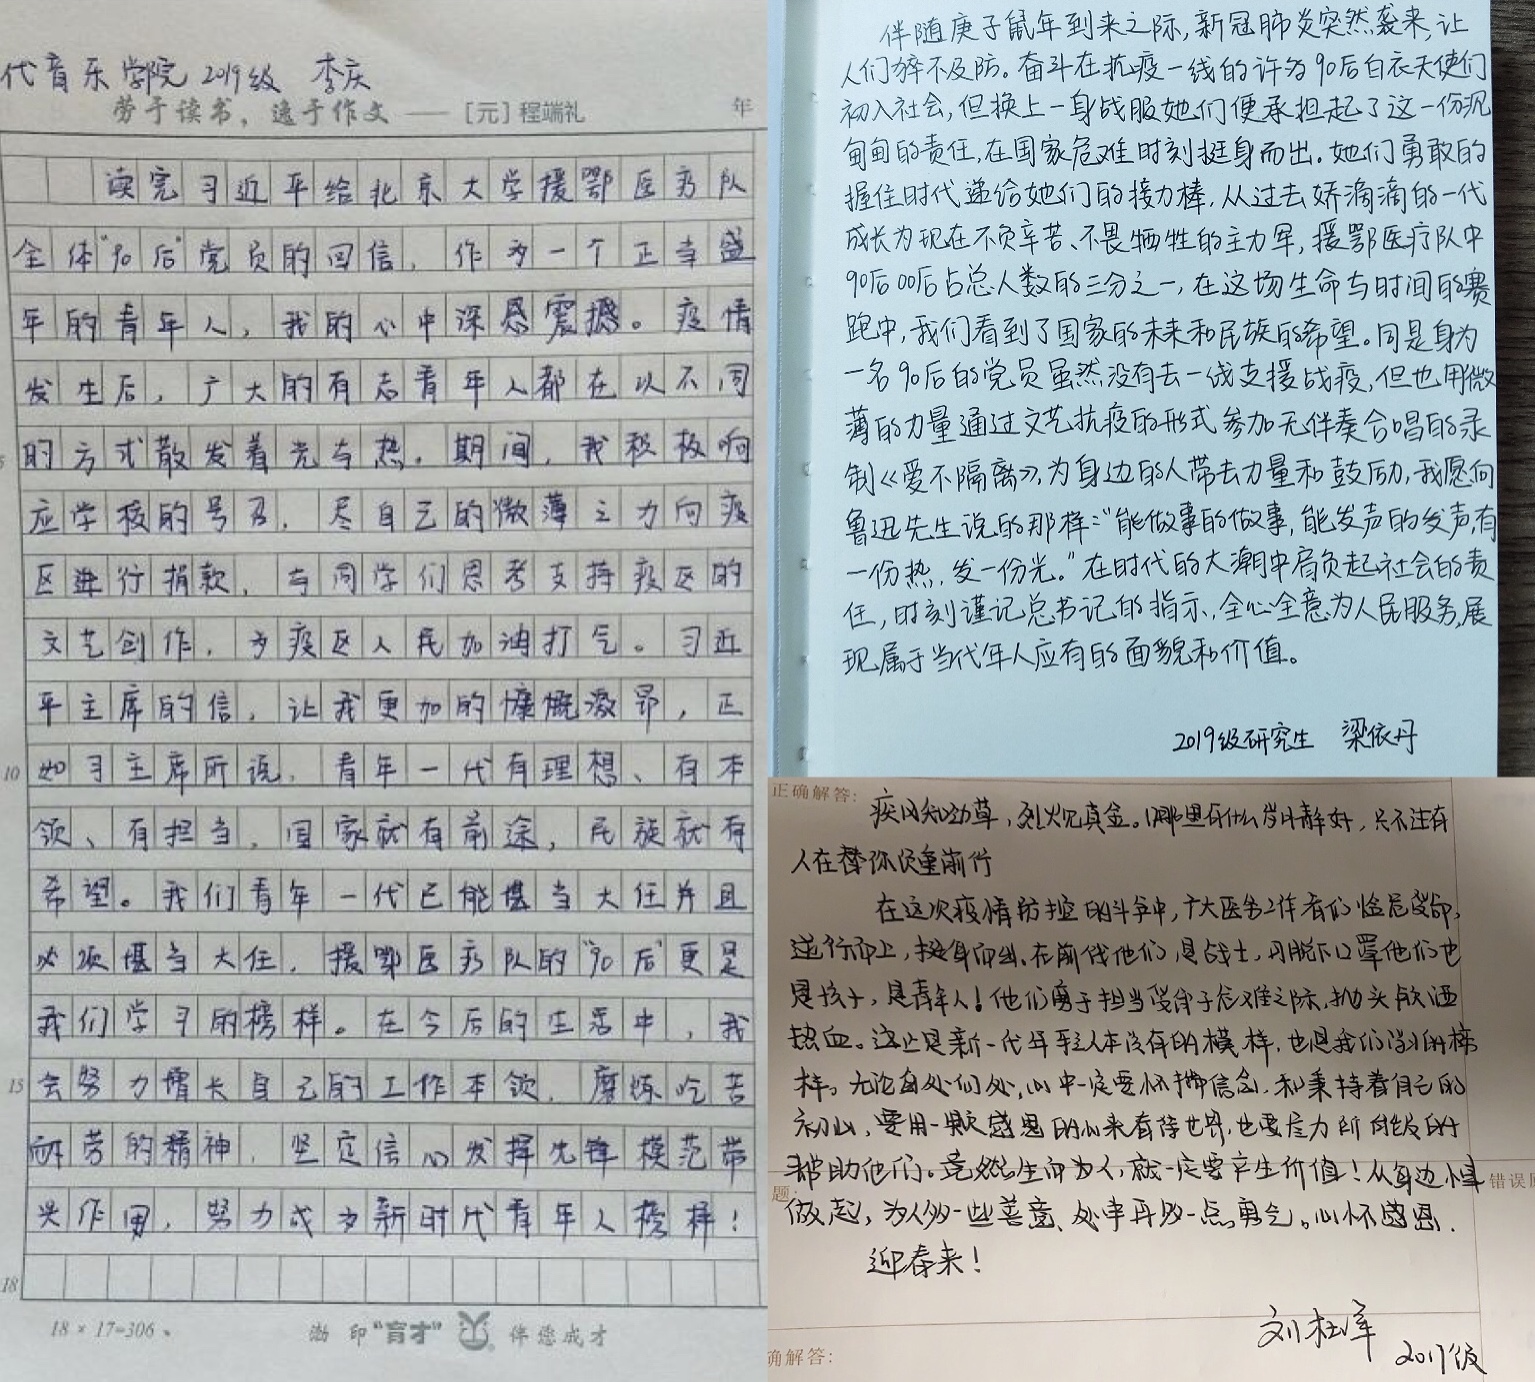 代音乐学院 2019级 李庆
劳于读书，逸于作文 —— [元] 程端礼
年
读完习近平给北京大学援鄂医疗队
全体"90后"党员的回信，作为一个正当盛
年的青年人，我的心中深感震撼。疫情
发生后，广大的有志青年人都在以不同
的方式散发着光与热。期间，我积极响
应学校的号召，尽自己的微薄之力向疫
区进行捐款，与同学们思考支持疫区的
文艺创作，为疫区人民加油打气。习近
平主席的信，让我更加的慷慨激昂，正
10
如习主席所说，青年一代有理想、有本
领、有担当，国家就有前途，民族就有
希望。我们青年一代已能堪当大任并且
必须堪当大任，援鄂医疗队的"90后"更是
我们学习的榜样。在今后的生活中，我
15
会努力增长自己的工作本领，磨炼吃苦
耐劳的精神，坚定信心发挥先锋模范带
头作用，努力成为新时代青年人榜样！
18
18 × 17=306
渤 印"育才" 伴您成才
伴随庚子鼠年到来之际，新冠肺炎突然袭来，让
人们猝不及防。奋斗在抗疫一线的许多90后白衣天使们
初入社会，但换上一身战服她们便承担起了这一份沉
甸甸的责任，在国家危难时刻挺身而出。她们勇敢的
握住时代递给她们的接力棒，从过去娇滴滴的一代
成长为现在不负辛苦、不畏牺牲的主力军，援鄂医疗队中
90后00后占总人数的三分之一，在这场生命与时间的赛
跑中，我们看到了国家的未来和民族的希望。同是身为
一名90后的党员虽然没有去一线支援战疫，但也用微
薄的力量通过文艺抗疫的形式参加无伴奏合唱的录
制《爱不隔离》，为身边的人带去力量和鼓励，我愿向
鲁迅先生说的那样："能做事的做事，能发声的发声，有
一份热，发一份光。"在时代的大潮中肩负起社会的责
任，时刻谨记总书记的指示，全心全意为人民服务，展
现属于当代年人应有的面貌和价值。
2019级研究生 梁依丹
正确解答：
疾风知劲草，烈火见真金。哪里有什么岁月静好，只不过有
人在替你负重前行
在这次疫情防控的斗争中，广大医务工作者们临危受命，
逆行而上，挺身而出。在前线他们是战士，可脱下口罩他们也
是孩子，是青年人！他们勇于担当受命于危难之际，抛头颅洒
热血。这正是新一代年轻人本该有的模样，也是我们学习的榜
样。无论身处何处，心中一定要怀揣信念，和秉持着自己的
初心，要用一颗感恩的心来看待世界，也要尽力所能及的
帮助他们。竟然生而为人，就一定要产生价值！从身边小事
题：
错误
做起，为人多一些善意、处事再多一点勇气。心怀感恩，
迎春来！
2017级
确解答：